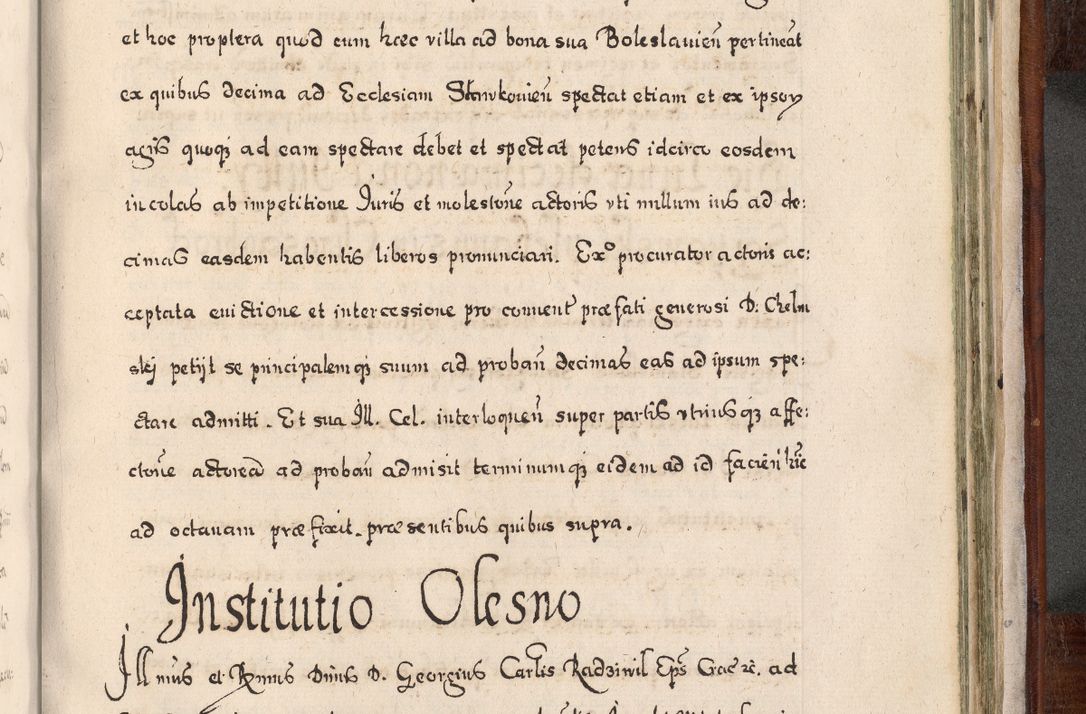 et hoc propterea quod cum haec villa ad bona sua Boleslauień pertineat
ex quibus decima ad Ecclesiam Slawkouień spectat etiam et ex ipsoӳ
agis quoq̷ ad eam spectare debet et spectat petens idcirco eosdem
incolas ab impetitione Juris et molestone actoris vti nullum ius ad de:
cimas easdem habentis liberos pronunciari. Ex° procurator actoris ac:
ceptata euictione et intercessione pro conuent praefati generosi D. Chelm
skj petijt se principalemq̷ suum ad proban decimas eas ad ipsum spe:
ctare admitti. Et sua Ill. Cel. interloquen super partis vtriusq̷ affe:
ctone actorea ad proban admisit terminumq̷ eidem ad id facien hic
ad octauam praefixit. praesentibus quibus supra.
Institutio Olesno
Illmus et Rmus Dnus D. Georgius Carlis Radziwil Eps Crac re. ad